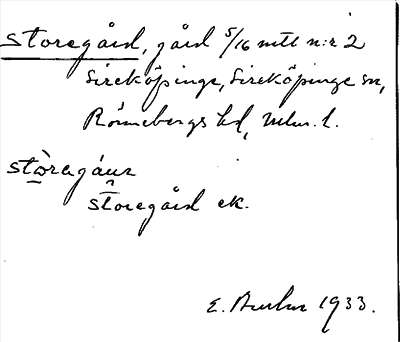 Storegård, gård 5/16 mtl n:r 2
Sireköpinge, Sireköpinge sn,
Rönnebergs hd, Mlm. l.
stòragáur
storegård ek.
E. 1933.